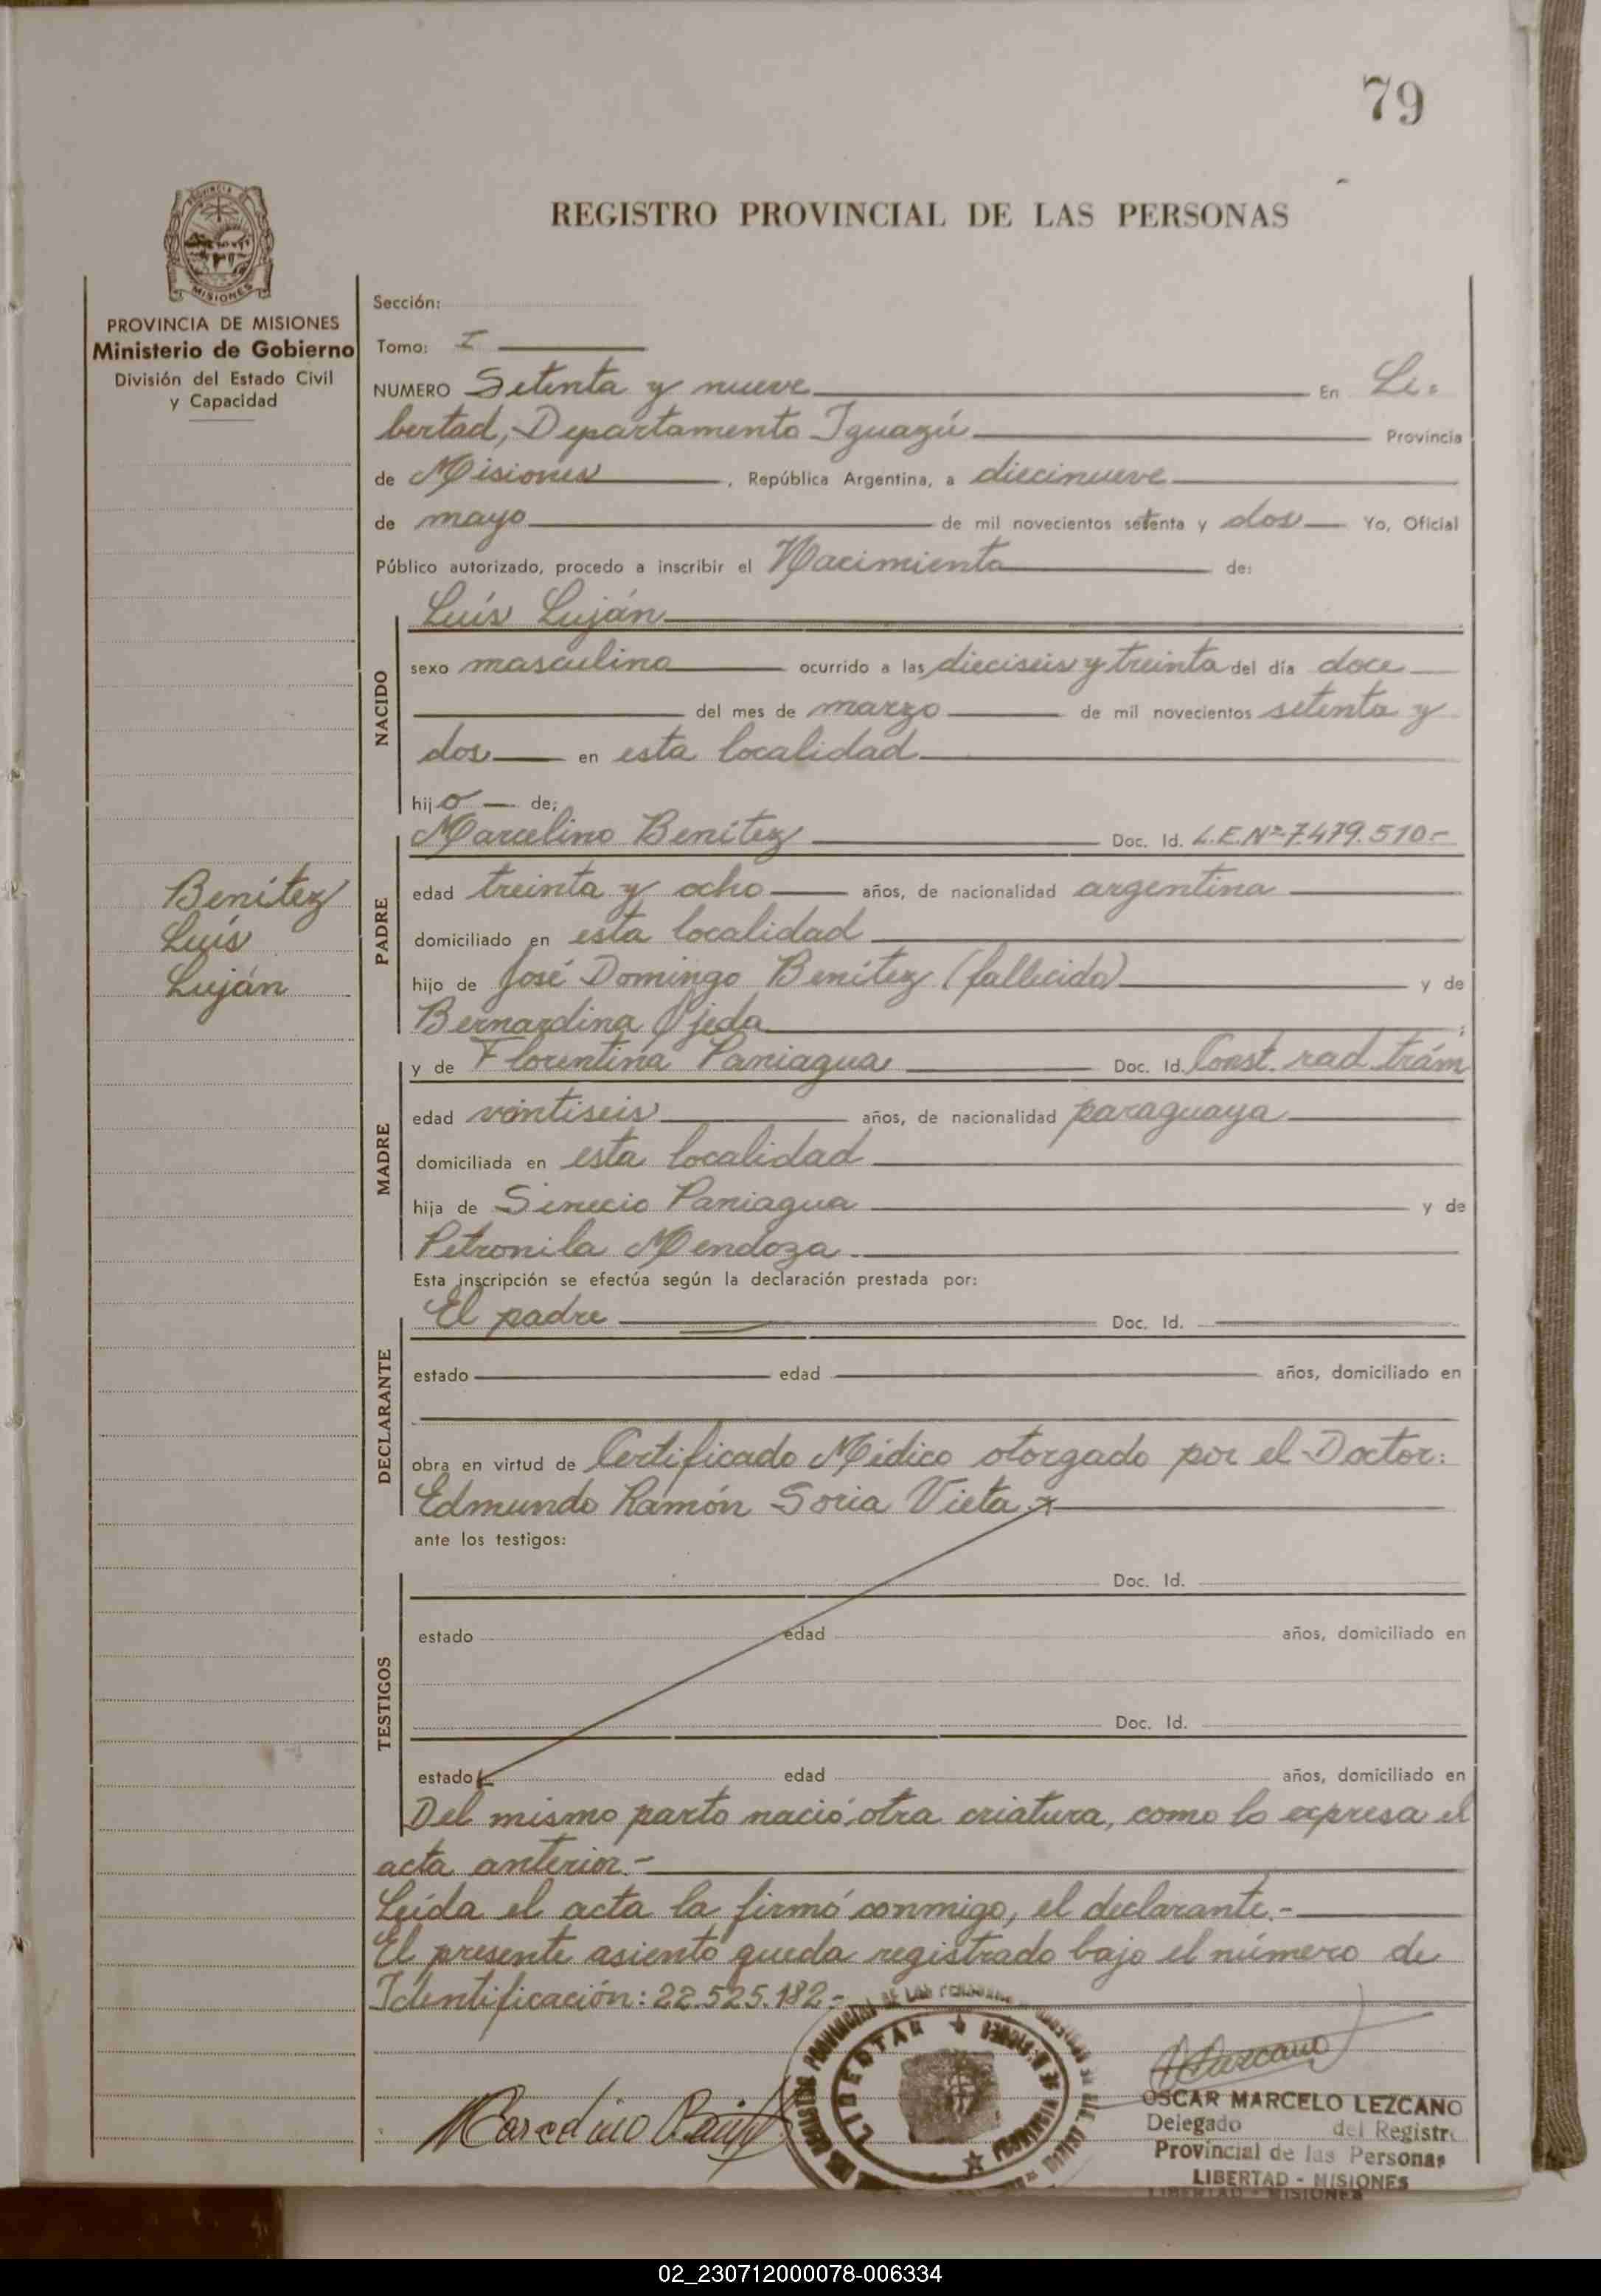 79
REGISTRO PROVINCIAL DE LAS PERSONAS
PROVINCIA DE MISIONES
Ministerio de Gobierno
División del Estado Civil
y Capacidad
Sección:
Tomo: I
NUMERO Setenta y nueve En Li-
bertad, Departamento Iguazú Provincia
de Misiones, República Argentina, a diecinueve
de mayo de mil novecientos setenta y dos Yo, Oficial
Público autorizado, procedo a inscribir el Nacimiento de:
Luís Luján
NACIDO
sexo masculino ocurrido a las dieciseis y treinta del día doce
del mes de marzo de mil novecientos setenta y
dos en esta localidad
hijo de;
Marcelino Benítez Doc. Id. L.E.Nº 7.479.510.-
PADRE
edad treinta y ocho años, de nacionalidad argentina
domiciliado en esta localidad
hijo de José Domingo Benítez (fallecido) y de
Bernardina Ojeda
Benítez
Luís
Luján
y de Florentina Paniagua Doc. Id. Const. rad. trám
MADRE
edad veintiseis años, de nacionalidad paraguaya
domiciliada en esta localidad
hija de Sinecio Paniagua y de
Petronila Mendoza.
Esta inscripción se efectúa según la declaración prestada por:
El padre Doc. Id.
DECLARANTE
estado edad años, domiciliado en
obra en virtud de Certificado Médico otorgado por el Doctor:
Edmundo Ramón Soria Vieta.
ante los testigos:
Doc. Id.
TESTIGOS
estado edad años, domiciliado en
Doc. Id.
estado edad años, domiciliado en
Del mismo parto nació otra criatura, como lo expresa el
acta anterior.-
Leída el acta la firmó conmigo, el declarante.-
El presente asiento queda registrado bajo el número de
Identificación: 22.525.182.-
Marcelino Benítez
LIBERTAD
MISIONES
OSCAR MARCELO LEZCANO
Delegado del Registr
Provincial de las Personas
LIBERTAD - MISIONES
02_230712000078-006334